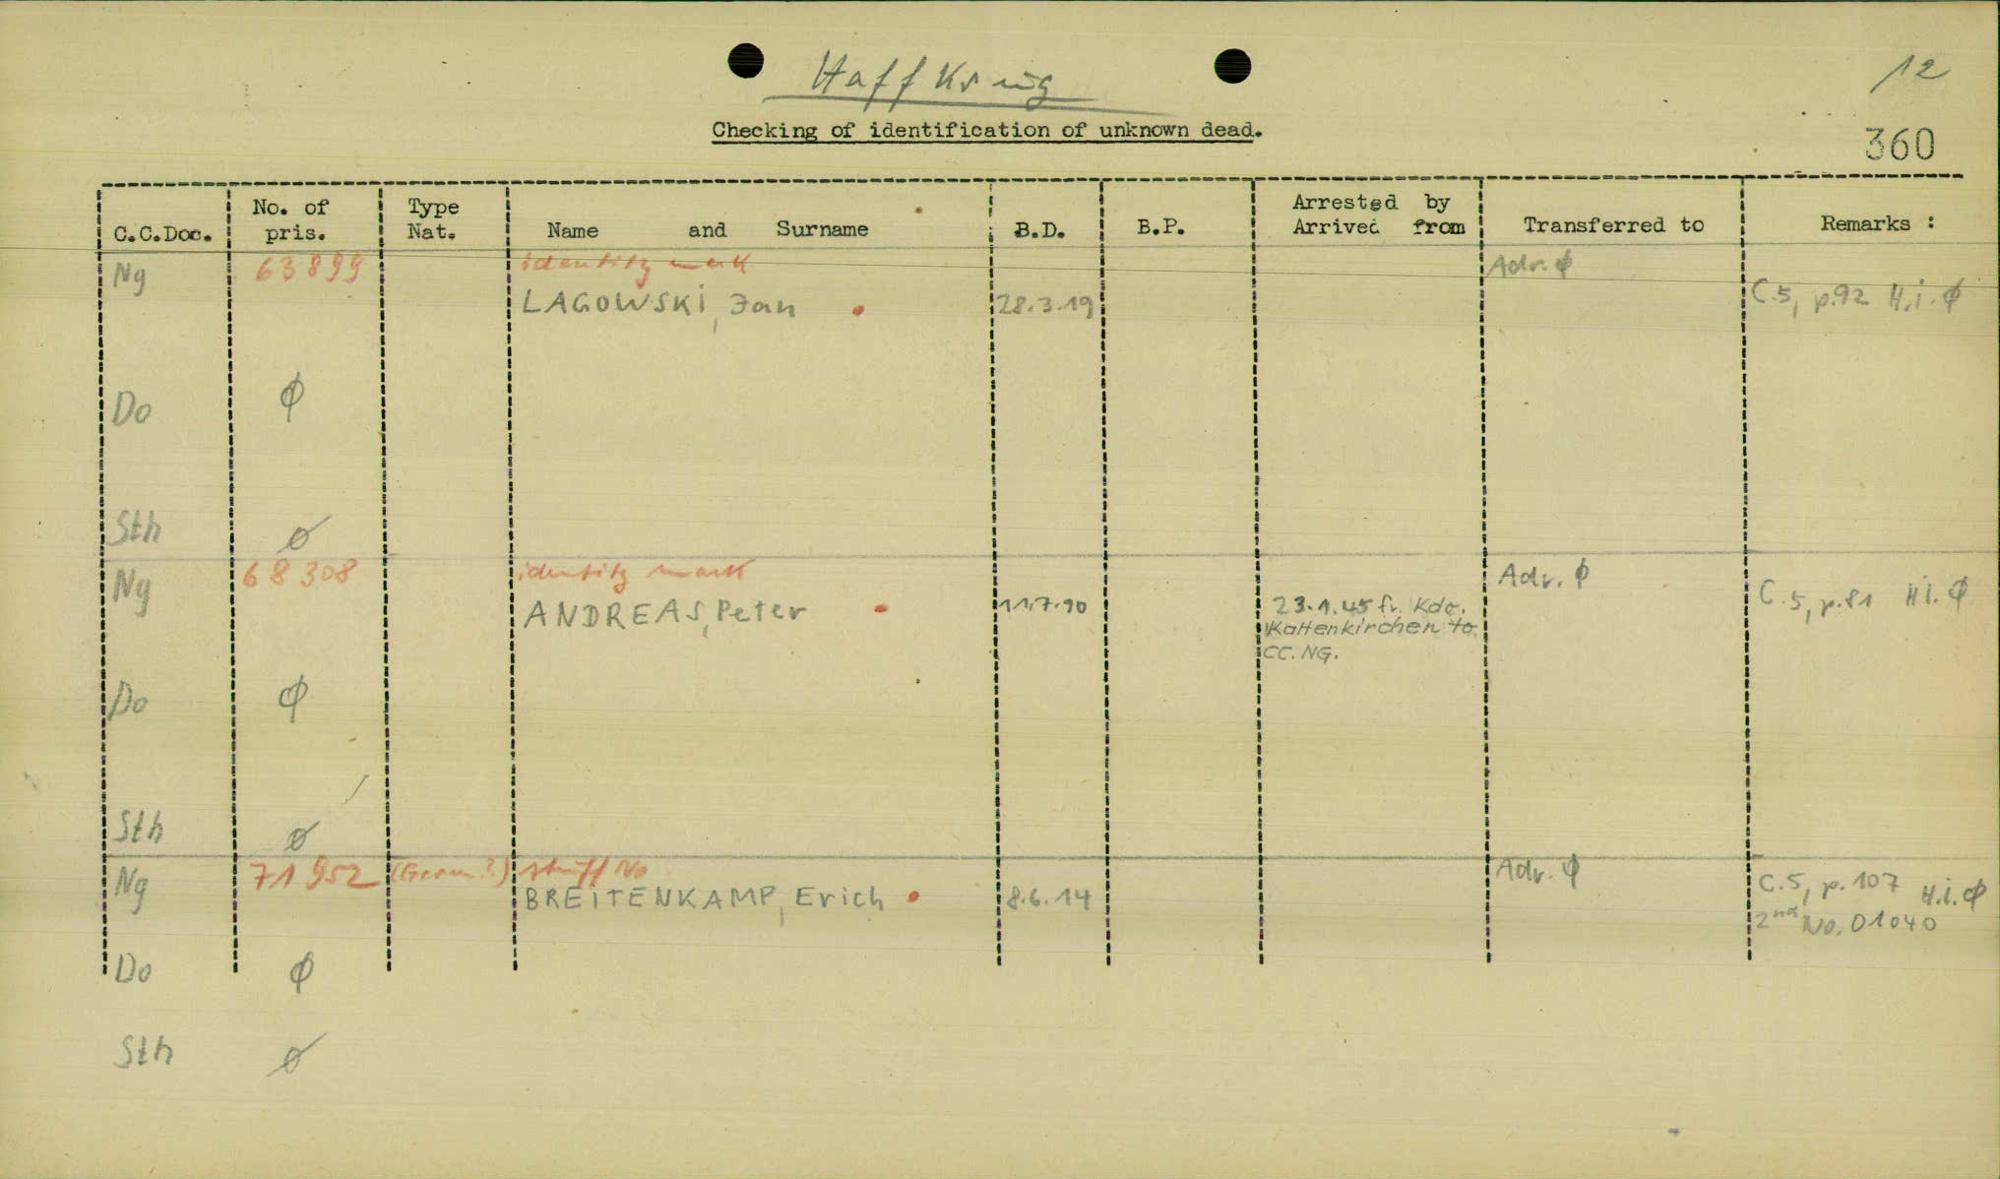 Haffkrug
12
Checking of identification of unknown dead.
360
C.C.Doc. No. of pris. Type Nat. Name and Surname B.D. B.P. Arrested by Arrived from Transferred to Remarks :
Ng 63899 identity mark Adr. ϕ
LAGOWSKI, Jan 28.3.19 C.5, p.92 H.i. ϕ
Do ϕ
Sth ø
Ng 68308 identity mark Adr. ϕ
ANDREAS, Peter 11.7.90 23.1.45 fr. Kdo. C.5, p.81 H.i. ϕ
Kaltenkirchen to
CC. NG.
Do ϕ
Sth ø
Ng 71952 (Germ.?) No Adr. ϕ
BREITENKAMP, Erich 8.6.14 C.5, p.107 H.i. ϕ
2nd No. 01040
Do ϕ
Sth ø